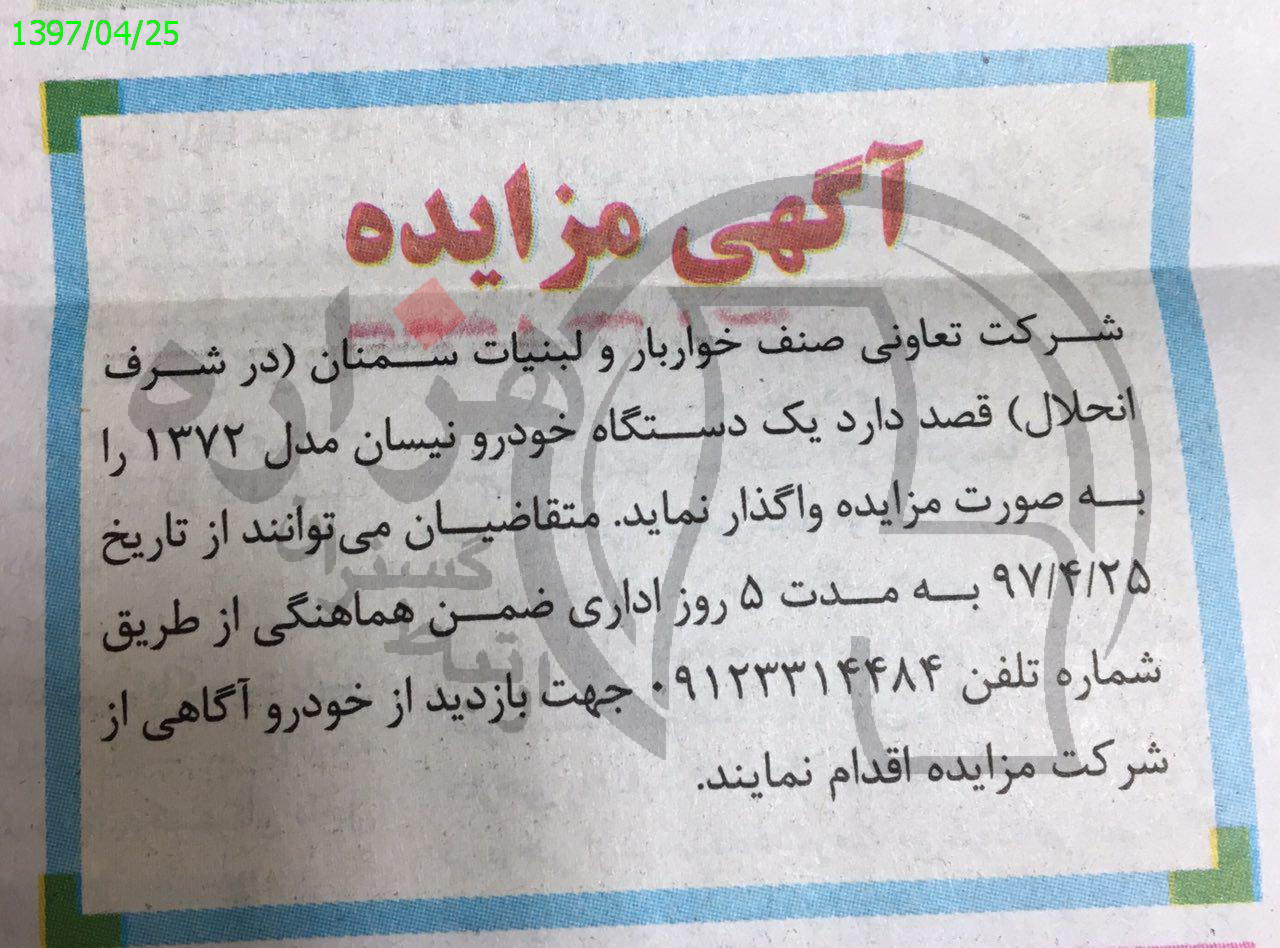 1397/04/25
آگهی مزایده
شرکت تعاونی صنف خواربار و لبنیات سمنان (در شرف
انحلال) قصد دارد یک دستگاه خودرو نیسان مدل ۱۳۷۲ را
به صورت مزایده واگذار نماید. متقاضیان می‌توانند از تاریخ
۹۷/۴/۲۵ به مدت ۵ روز اداری ضمن هماهنگی از طریق
شماره تلفن ۰۹۱۲۳۳۱۴۴۸۴ جهت بازدید از خودرو آگاهی از
شرکت مزایده اقدام نمایند.
هزاره
گستران
ارتباط